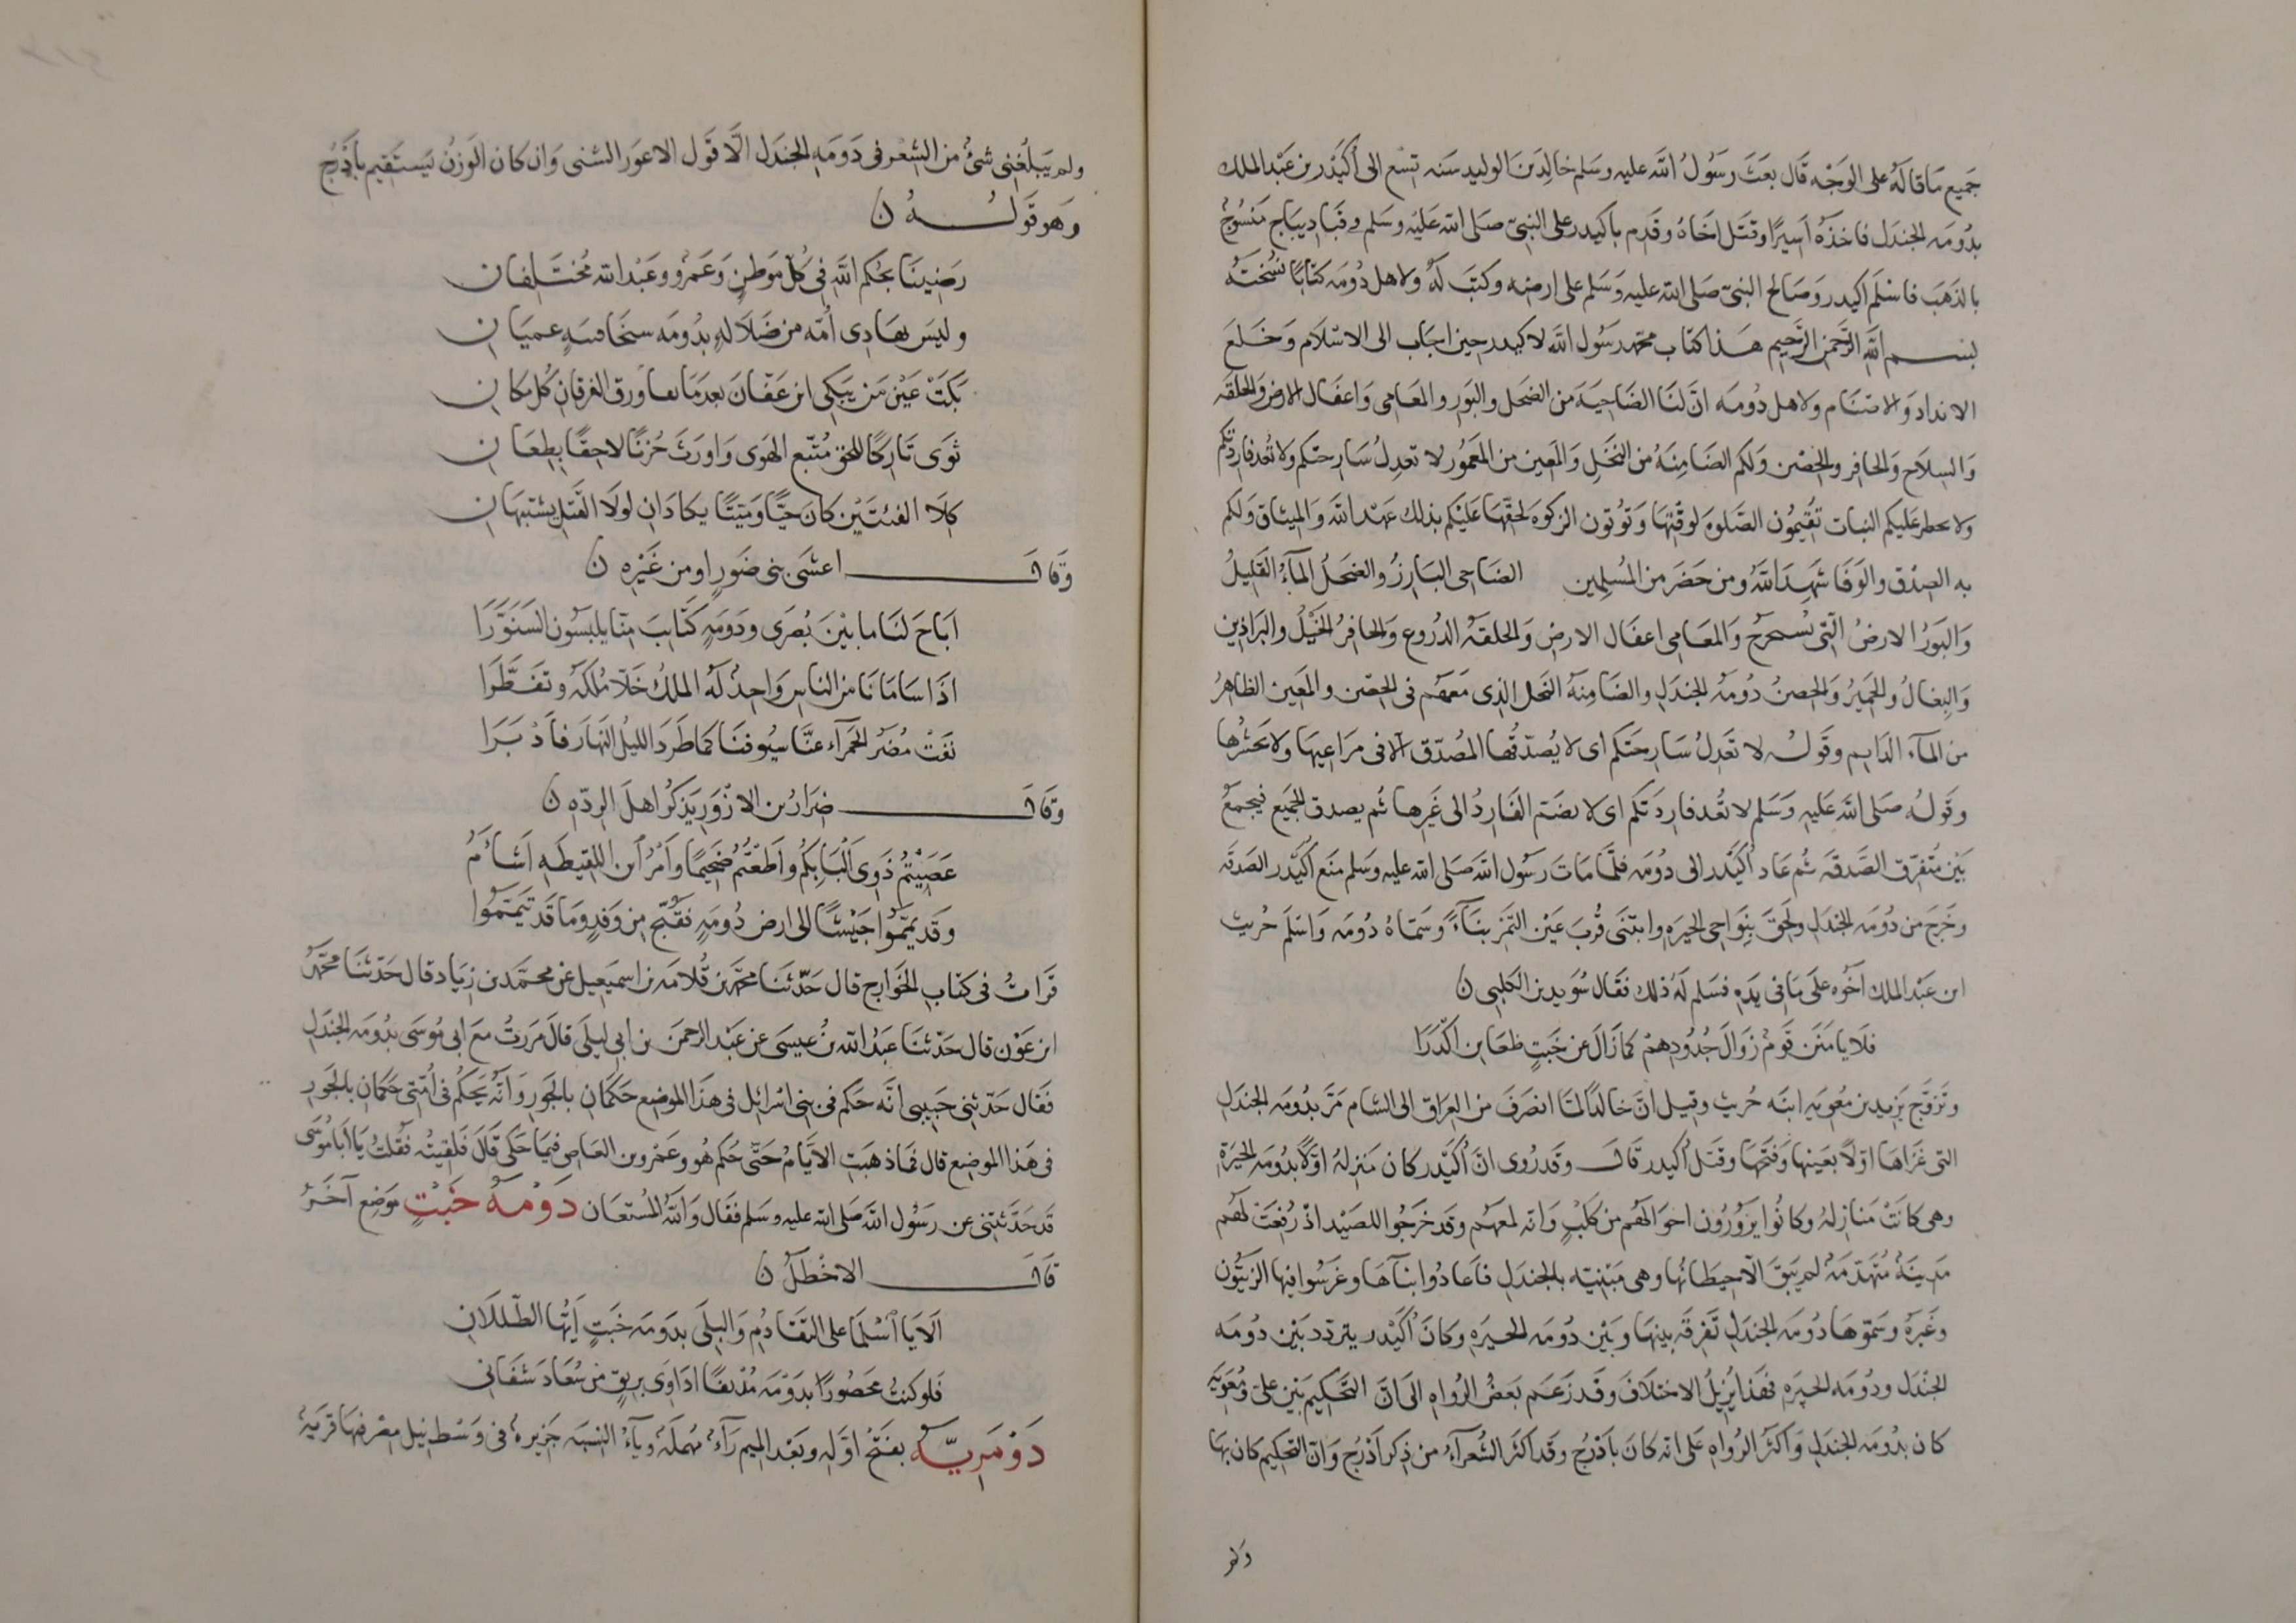 جميع ما قاله على الوجه قال بعث رسول الله عليه وسلم خالد بن الوليد سنه تسع الى أكيدر بن عبد الملك
بدومه الجندل فاخذه اسيرا وقتل اخاه وقدم باكيدر على النبي صلى الله عليه وسلم وقبا ديباج منسوج
بالذهب فاسلم اكيدر وصالح النبي صلى الله عليه وسلم على ارضه وكتب له ولاهل دومه كتابا نسخته
بسم الله الرحمن الرحيم هذا كتاب محمد رسول الله لاكيدر حين اجاب الى الاسلام وخلع
الانداد والاصنام ولاهل دومه ان لنا الضاحيه من الضحل والبور والمعامى واغفال الارض والحلقه
والسلاح والحافر والحصن ولكم الضامنه من النخل والمعين من المعمور لا تعدل سارحتكم ولا تعد فاردتكم
ولا يحظر عليكم النبات تقيمون الصلوه لوقتها وتوتون الزكوه لحقها عليكم بذلك عهد الله والميثاق ولكم
به الصدق والوفا شهد الله ومن حضر من المسلمين الضاحى البارز والضحل الماء القليل
والبور الارض التي تستخرج والمعامى اعفال الارض والحلقه الدروع والحافر الخيل والبراذين
والبغال والحمير والحصن دومه الجندل والضامنه النخل الذى معهم فى الحصن والمعين الظاهر
من الماء الدايم وقوله لا تعدل سارحتكم اى لا يصدقها المصدق الا فى مراعيها ولا يحشرها
وقوله صلى الله عليه وسلم لا تعد فاردتكم اى لا يضم الفارد الى غيرها ثم يصدق الجميع فيجمع
بين متفرق الصدقه ثم عاد أكيدر الى دومه فلما مات رسول الله صلى الله عليه وسلم منع أكيدر الصدقه
وخرج من دومه الجندل ولحق بنواحى الحيره وابتنى قرب عين التمر بناء وسماه دومه واسلم حريث
ابن عبد الملك اخوه على ما فى يده فسلم له ذلك فقال سويد بن الكلبى ن
فلا يامنن قوم زوال جدودهم كما زال عن خبت ظعاين اكدرا
وتزوج يزيد بن معويه ابنه حريث وقيل ان خالدا لما انصرف من العراق الى الشام مر بدومه الجندل
التى غزاها اولا بعينها وفتحها وقتل أكيدر قال وقد روى ان أكيدر كان منزله اولا بدومه الحيرة
وهى كانت منازله وكانوا يزورون اخوالهم من كلب وانه لمعهم وقد خرجوا للصيد اذ رفعت لهم
مدينة متهدمة لم يبق الا حيطانها وهى مبنيه بالجندل فاعادوا بناءها وغرسوا فيها الزيتون
وغيره وسموها دومه الجندل تفرقه بينها وبين دومه الحيره وكان أكيدر يتردد بين دومه
الجندل ودومه الحيره فهذا يزيل الاختلاف وقد زعم بعض الرواه الى ان التحكيم بين على ومعويه
كان بدومه الجندل واكثر الرواه على انه كان باذرج وقد اكثر الشعراء من ذكر اذرج وان التحكيم كان بها
ولم
ولم يبلغنى شئ من الشعر فى دومه الجندل الا قول الاعور الشنى وان كان الوزن يستقيم باذرج
وهو قوله ن
رضينا بحكم الله فى كل موطن وعمرو وعبد الله مختلفان
وليس بهادى أمه من ضلاله بدومه سيخا فتنه عميان
بكت عين من يبكى ابن عفان بعدما نفا ورق الفرقان كل مكان
ثوى تاركا للحق متبع الهوى واورث حزنا لاحقا بطعان
كلا الفئتين كان حيا وميتا يكادان لولا القتل يشتبهان
وقال اعشى بنى ضور او من غيره ن
اباح لنا ما بين بصرى ودومه كتايب منا يلبسون السنورا
اذا سامانا من الناس واحد له الملك خلا ملكه وتفطرا
نفت مضر الحمراء عنا سيوفنا كما طرد الليل النهار فادبرا
وقال ضرار بن الازور يذكر اهل الرده ن
عصيتم ذوى البابكم واطعتم ضجيما وامر ابن اللقيطه اشام
وقد يمموا جيشا الى ارض دومه فقبح من وفد وما قد تيمموا
قرات فى كتاب الخوارج قال حدثنا محمد بن قلامه بن اسمعيل عن محمد بن زياد قال حدثنا محمد
ابن عون قال حدثنا عبد الله بن عيسى عن عبد الرحمن بن ابى ليلى قال مررت مع ابى موسى بدومه الجندل
فقال حدثنى حبيبى انه حكم فى بنى اسرائل فى هذا الموضع حكمان بالجور وانه يحكم فى أمتى حكمان بالجور
فى هذا الموضع قال فما ذهبت الايام حتى حكم هو وعمرو بن العاص فيما حكى قال فلقيته فقلت يا ابا موسى
قد حدثتنى عن رسول الله صلى الله عليه وسلم فقال والله المستعان دومة خبت موضع آخر
قال الاخطل ن
الا يا اسلما على التقادم والبلى بدومه خبت ايها الطللان
فلو كنت محصورا بدومه مدنفا اداوى بريق من سعاد شفانى
دومرية بفتح اوله وبعد الميم راء مهمله وياء النسبه جزيره فى وسط نيل مصر فيها قرية